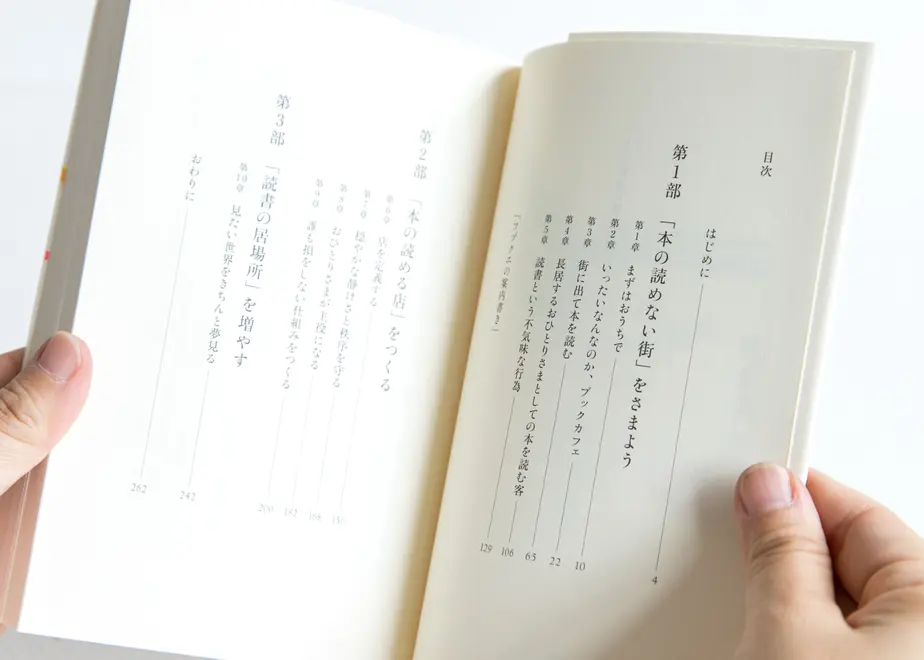 目次
はじめに 4
第1部 「本の読めない街」をさまよう
第1章 まずはおうちで 10
第2章 いったいなんなのか、ブックカフェ 22
第3章 街に出て本を読む 65
第4章 長居するおひとりさまとしての本を読む客 106
第5章 読書という不気味な行為 129
「フヅクエの案内書き」
第2部 「本の読める店」をつくる
第6章 店を定義する 150
第7章 穏やかな静けさと秩序を守る 168
第8章 おひとりさまが主役になる
第9章 誰も損をしない仕組みをつくる 200
第3部 「読書の居場所」を増やす
第10章 見たい世界をきちんと夢見る 242
おわりに 262